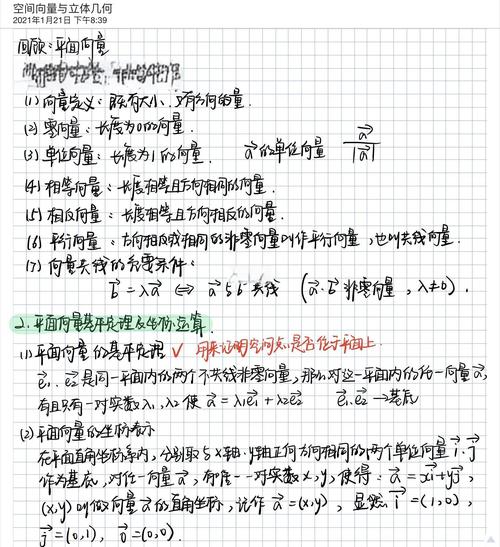 空间向量与立体几何
2021年1月21日 下午8:39
回顾:平面向量
(1) 向量定义:既有大小、又有方向的量.
(2) 零向量:长度为0的向量.
(3) 单位向量:长度为1的向量. a⃗的单位向量 a⃗/|a⃗|
(4) 相等向量:长度相等且方向相同的向量.
(5) 相反向量:长度相等且方向相反的向量.
(6) 平行向量:方向相反或相同的非零向量叫作平行向量,也叫共线向量.
(7) 向量共线的充要条件:
b⃗=λa⃗ ⇔ a⃗与b⃗共线 (a⃗、b⃗非零向量,λ≠0).
2.平面向量基本定理及坐标运算.
(1) 平面向量的基本定理 √ 用来证明空间点是否位于平面上.
e⃗₁、e⃗₂是同一平面内的两个不共线非零向量,那么对这一平面内的任一向量a⃗,
有且只有一对实数λ₁,λ₂使 a⃗=λ₁e⃗₁+λ₂e⃗₂ e⃗₁、e⃗₂→基底
(2) 平面向量的坐标表示
在平面直角坐标系内,分别取与x轴、y轴正方向相同的两个单位向量i⃗、j⃗
作为基底,对任一向量a⃗,有唯一一对实数x,y,使得:a⃗=xi⃗+yj⃗,
(x,y)叫做向量a⃗的直角坐标,记作a⃗=(x,y),显然i⃗=(1,0),
j⃗=(0,1),0⃗=(0,0).